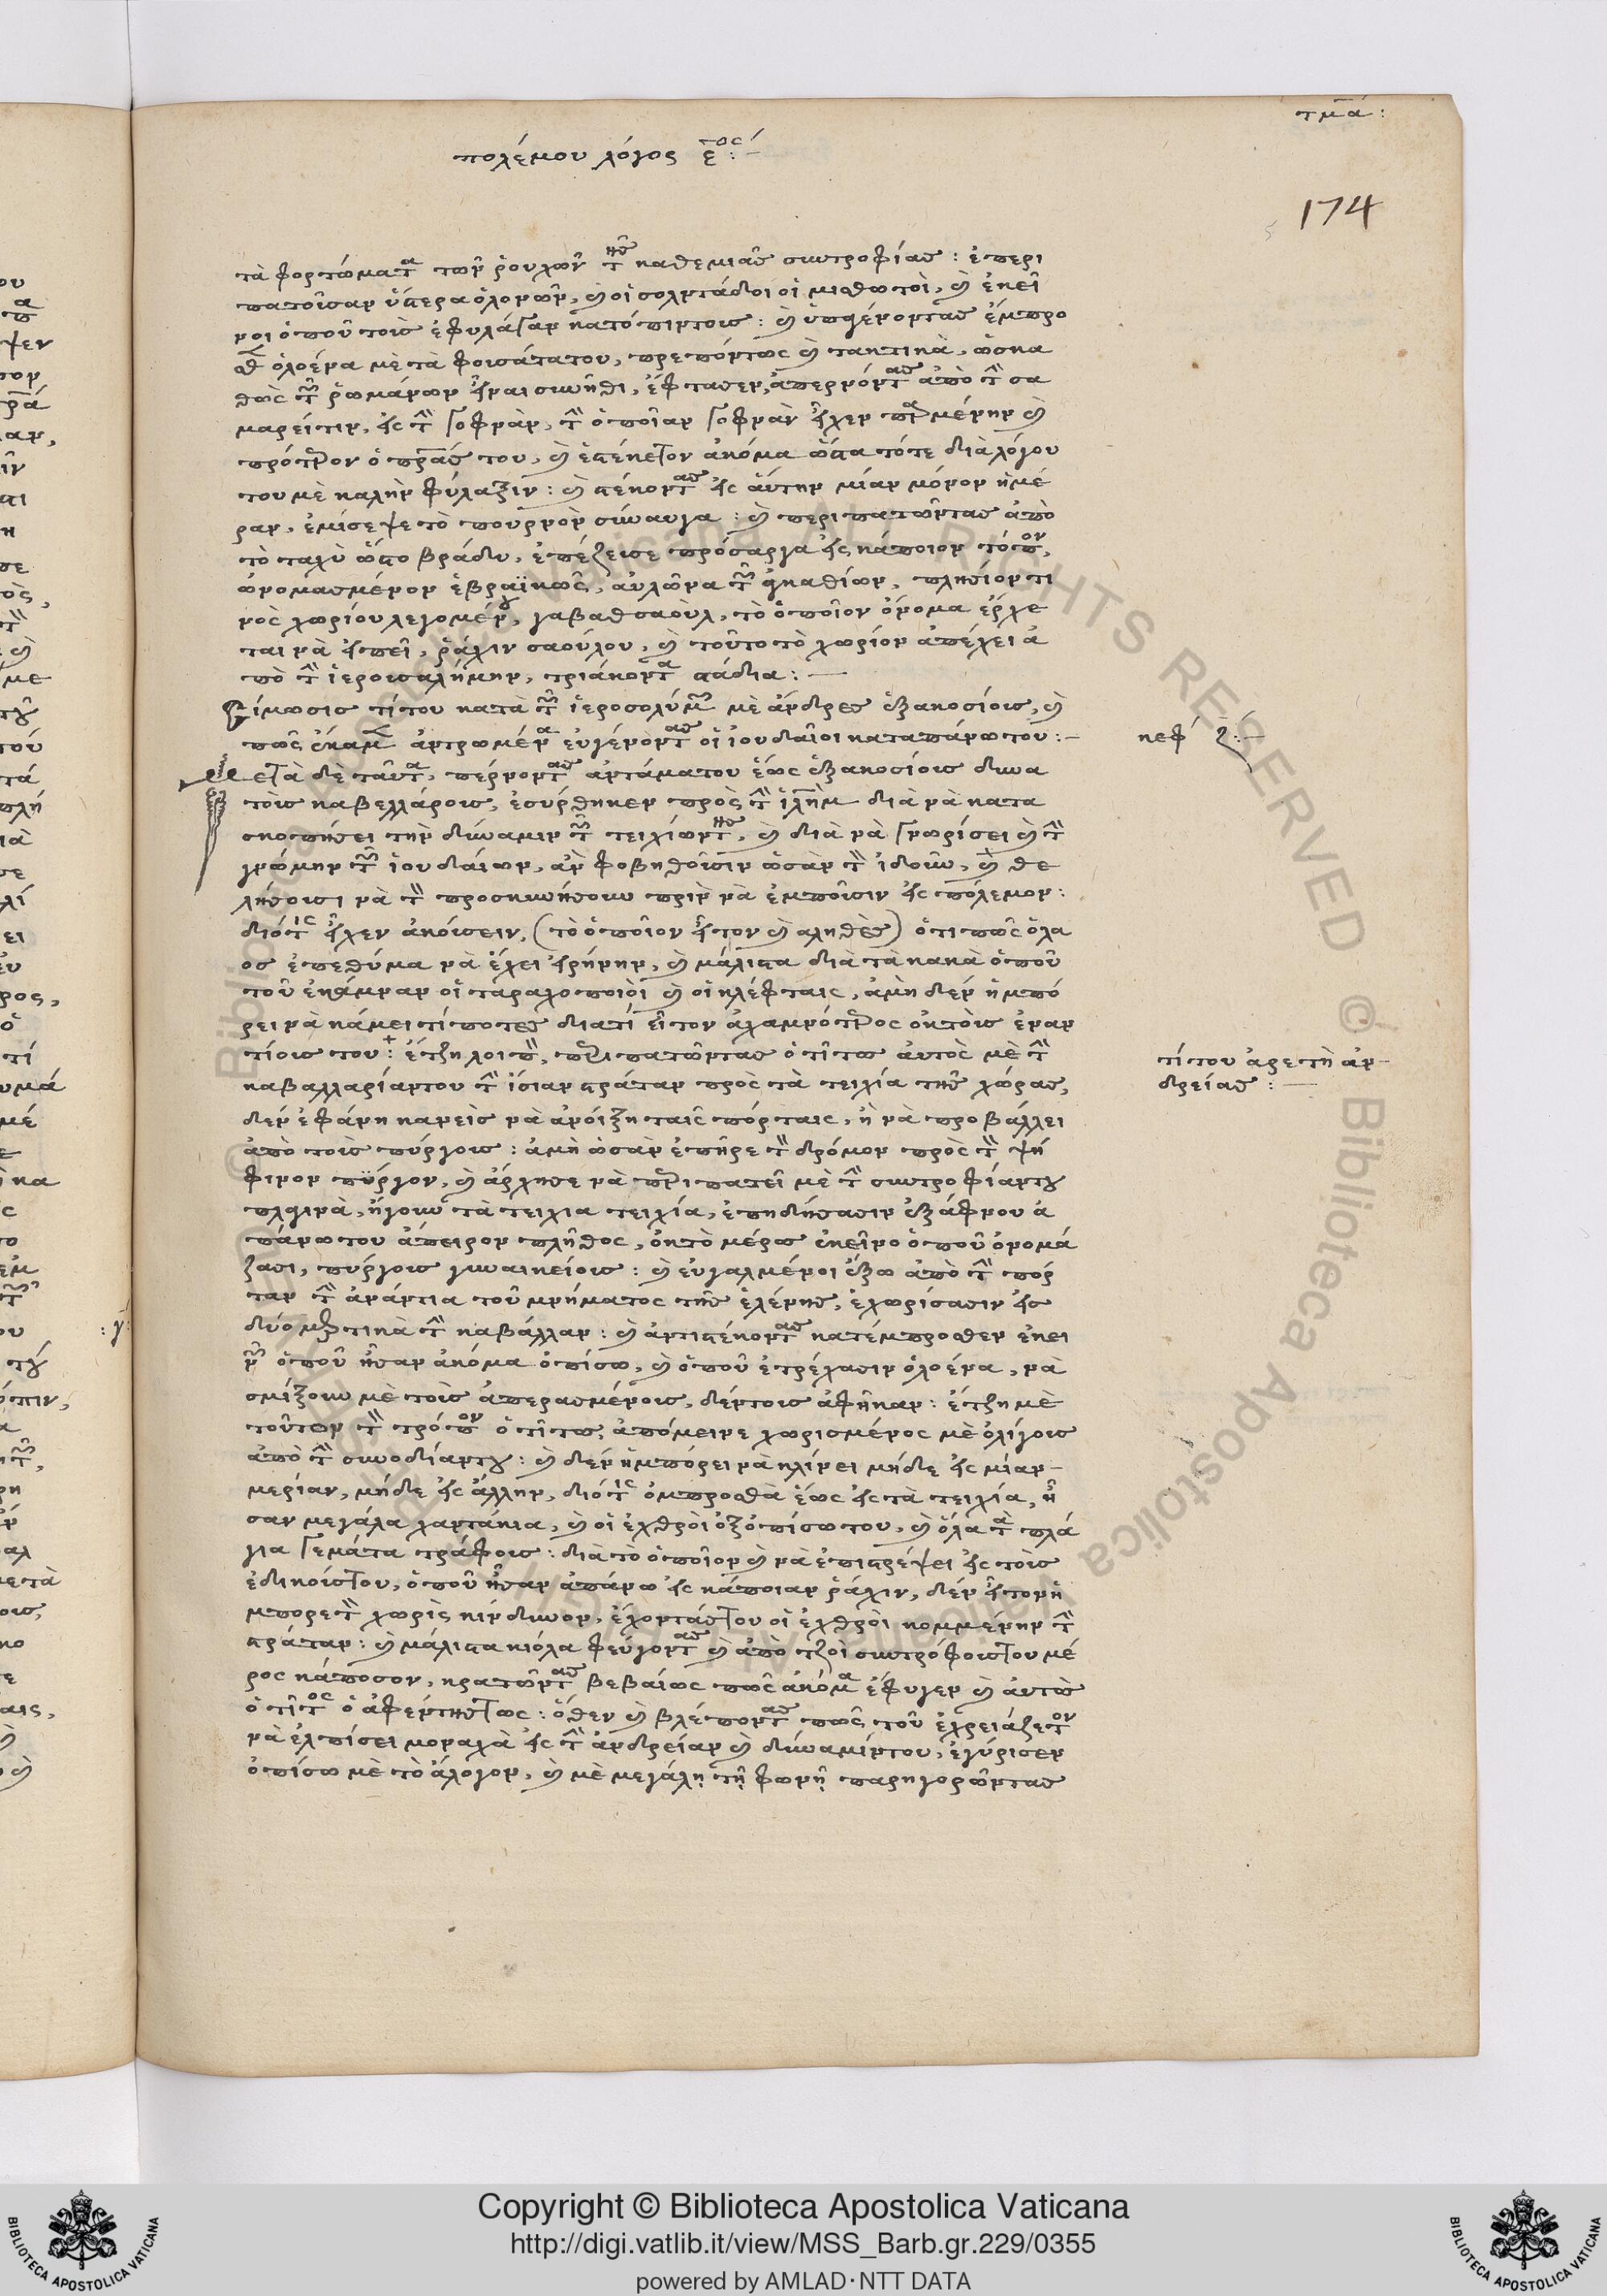 τμα:
πολέμου λόγος ε:ος
174
τὰ φορτώματα τῶν ρούχων τῆς καθεμιᾶς συντροφίας: ἐπερι
πατοῦσαν ὕστερα ὁλονῶν, καὶ οἱ σολντάδοι οἱ μισθωτοὶ, καὶ ἐκεῖ
νοι ὁποῦ τοὺς ἐφυλάγαν κατόπιντους: καὶ ὑπαγένοντας ἔμπρο
σθεν ὁλοένα μὲ τὰ φουσάτατου, πρεπόντως καὶ τακτικὰ, ὡσκα
θὼς τῶν ρωμάνων εἶναι συνήθι, ἔφτασεν, ἀπερνόντας ἀπὸ τὴν σα
μαρείτιν, εἰς τὴν γοφνὰν, τὴν ὁποίαν γοφνὰν εἶχεν παρμένην καὶ
πρότερον ὁ πατράς του, καὶ ἐστένετον ἀκόμα ὥστα τότε διὰ λόγου
του μὲ καλὴν φύλαξιν: καὶ στέκοντας εἰς αὐτην μίαν μόνον ἡμέ
ραν, ἐμίσεψε τὸ πουρνὸν σύναυγα: καὶ περιπατῶντας ἀπὸ
τὸ ταχὺ ὥστο βράδυ, ἐπέζευσε πρόσαργα εἰς κάποιον τόπον,
ὀνομασμένον ἑβραϊκῶς, αὐλῶνα τῶν ἀγκαθίων, πλησίον τι
νὸς χωρίου λεγομένου, γαβαθσαοὺλ, τὸ ὁποῖον ὄνομα ἔρχε
ται νὰ εἰπεῖ, ῥάχιν σαούλου, καὶ τοῦτο τὸ χωρίον ἀπέχει ἀ
πὸ τὴν ἱερουσαλήμην, τριάκοντα στάδια:
Σίμωσις τίτου κατὰ τῶν ἱεροσολύμων μὲ ἄνδρες ἑξακοσίους, καὶ
πῶς ἔκαμαν ἀντρωμένα εὐγένοντας οἱ ἰουδαῖοι καταπάνωτου:
κεφ ζ:
Μετὰ δὲ ταῦτα, πέρνοντας ἀντάματου ἕως ἑξακοσίους δυνα
τοὺς καβελλάρους, ἐσύρθηκεν πρὸς τὴν ἱλῆμ διὰ νὰ κατα
σκοπήσει τὴν δύναμιν τῶν τειχίωντης, καὶ διὰ νὰ γνωρίσει καὶ τὴν
γνώμην τῶν ἰουδαίων, ἂν φοβηθοῦσιν ὡσὰν τὸν ἰδοῦν, καὶ θε
λήσουσι νὰ τὸν προσκυνήσουν πρὶν νὰ ἐμποῦσιν εἰς πόλεμον:
διότις εἶχεν ἀκούσειν, (τὸ ὁποῖον εἶτον καὶ αληθὲς) ὅτι πῶς ὁ λα
ος ἐπεθύμα νὰ ἔχει εἰρήνην, καὶ μάλιστα διὰ τὰ κακὰ ὁποῦ
τοῦ ἐκάμναν οἱ ταραχοποιοὶ καὶ οἱ κλέφταις, ἀμὴ δὲν ἠμπό
ρει νὰ κάμει τίποτες διατί εἶτον ἀχαμνότερος ὀκτοὺς ἐναν
τίους του: ἔτζη λοιπὸν, περιπατῶντας ὁ τῖτος αὐτὸς μὲ τὴν
τίτου ἀρετὴ ἀν-
δρείας:
καβαλλαρίαντου τὴν ἴσιαν στράταν πρὸς τὰ τειχία τῆς χώρας,
δὲν ἐφάνη κανεὶς νὰ ἀνοίξη ταὶς πόρταις, ἢ νὰ προβάλλει
ἀπὸ τοὺς πύργους: ἀμὴ ὡσὰν ἐπῆρε τὸν δρόμον πρὸς τὸν ψή
φινον πύργον, καὶ ἄρχησε νὰ περιπατεῖ μὲ τὴν συντροφίαντου
πλαγινὰ, ἤγουν τὰ τειχια τειχία, ἐπηδήσασιν ἐξάφνου ἀ
πάνωτου ἄπειρον πλῆθος, ὀκτὸ μέρος ἐκεῖνο ὁποῦ ὀνομά
ζασι, πύργους γυναικείους: καὶ εὐγαλμένοι ἔξω ἀπὸ τὴν πόρ
ταν τὴν ἀνάντια τοῦ μνήματος τῆς ἑλένης, ἐχωρίσασιν εἰς
δύο μερτικὰ τὴν καβάλλαν: καὶ ἀντιστέκοντας κατέμπροσθεν ἐκει
νῶν ὁποῦ ἦσαν ἀκόμα ὀπίσω, καὶ ὁποῦ ἐτρέχασιν ὁλοένα, νὰ
σμίξουν μὲ τοὺς ἀπερασμένους, δέντους ἀφῆκαν: ἔτζη μὲ
τοῦτον τὸν τρόπον ὁ τῖτος, ἀπόμεινε χωρισμένος μὲ ὀλίγους
ἀπὸ τὴν συνοδίαντου: καὶ δὲν ἠμπόρει νὰ κλίνει μήδε εἰς μίαν
μεριαν, μήδε εἰς ἄλλην, διότις ὀμπροσθὰ ἕως εἰς τὰ τειχία, ἦ
σαν μεγάλα χαντάκια, καὶ οἱ ἐχθροὶ ὀξοπίσωτου, καὶ ὅλα τὰ πλά
για γεμάτα τράφους: διὰ τὸ ὁποῖον καὶ νὰ ἐπιστρέψει εἰς τοὺς
ἐδικούςτου, ὁποῦ ἦσαν ἀπάνω εἰς κάποιαν ῥάχιν, δὲν εἶτον ἠ
μπορετὸν χωρὶς κίνδυνον, ἔχοντάςτου οἱ ἐχθροὶ κομμένην τὴν
στράταν: καὶ μάλιστα κιόλα φεύγοντας καὶ ἀπὸ τζοὶ συντρόφουςτου μέ
ρος κάποσον, κρατῶντας βεβαίως πῶς ἀκόμα ἔφυγεν καὶ αὐτὸς
ὁ τῖτος ὁ ἀφέντηςτως: ὅθεν καὶ βλέποντας πῶς τοῦ ἐχρειάζετον
νὰ ἐλπίσει μοναχὰ εἰς τὴν ἀνδρείαν καὶ δύναμίντου, ἐγύρισεν
ὀπίσω μὲ τὸ ἄλογον, καὶ μὲ μεγάλῃ τῇ φωνῇ παρηγορῶντας
Copyright © Biblioteca Apostolica Vaticana
http://digi.vatlib.it/view/MSS_Barb.gr.229/0355
powered by AMLAD·NTT DATA